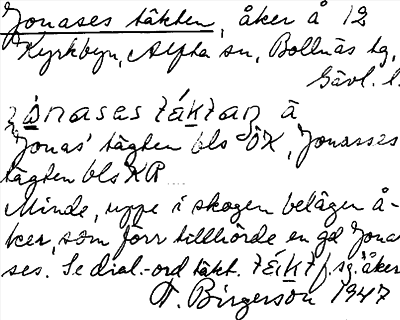 Jonases täkten, åker å 12
Kyrkbyn, Alfta sn, Bollnäs tg,
Gävl. l.
å
Jonas' tägten bls ÖK, Jonasses
tägten bls KR
Minde, uppe i skogen belägen å-
ker, som förr tillhörde en gd Jona
ses. Se dial.-ord täkt. f. sg. åker
T. Birgerson 1947